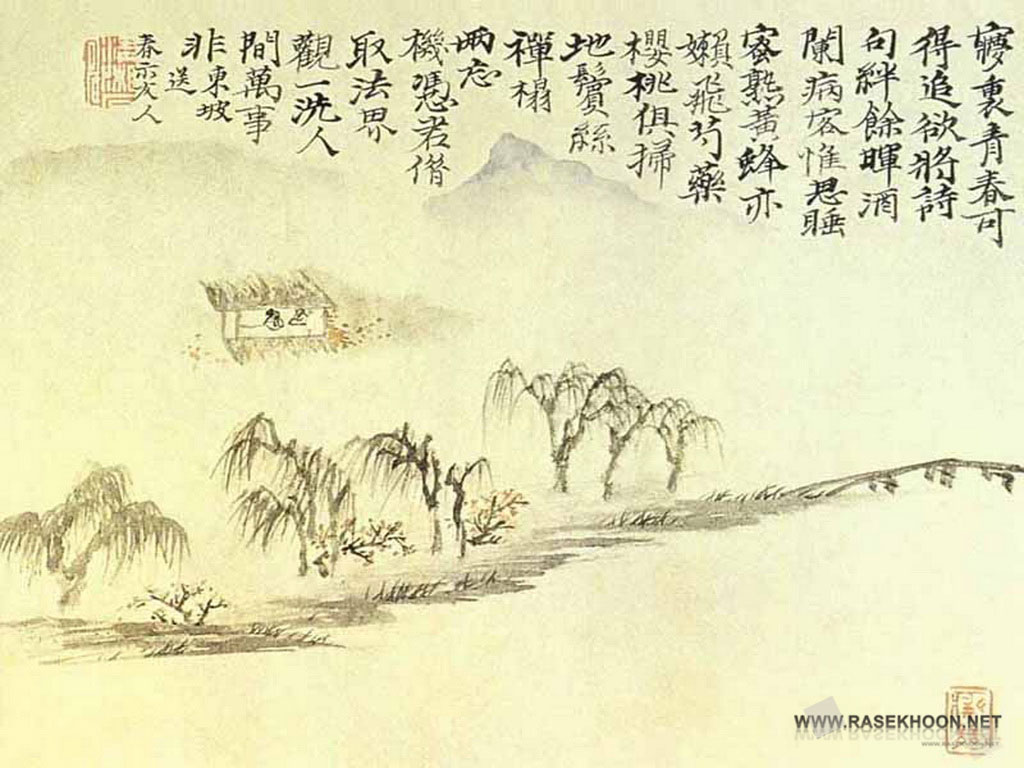 夣裏青春可
得追欲將詩
句絆餘暉酒
闌病客惟思睡
宻熟黃蜂亦
嬾飛芍藥
櫻桃俱掃
地鬢絲
禪榻
兩忘
機憑君借
取法界
觀一洗人
間萬事
非東坡
送
春
WWW.RASEKHOON.NET
www.rasekhoon.net